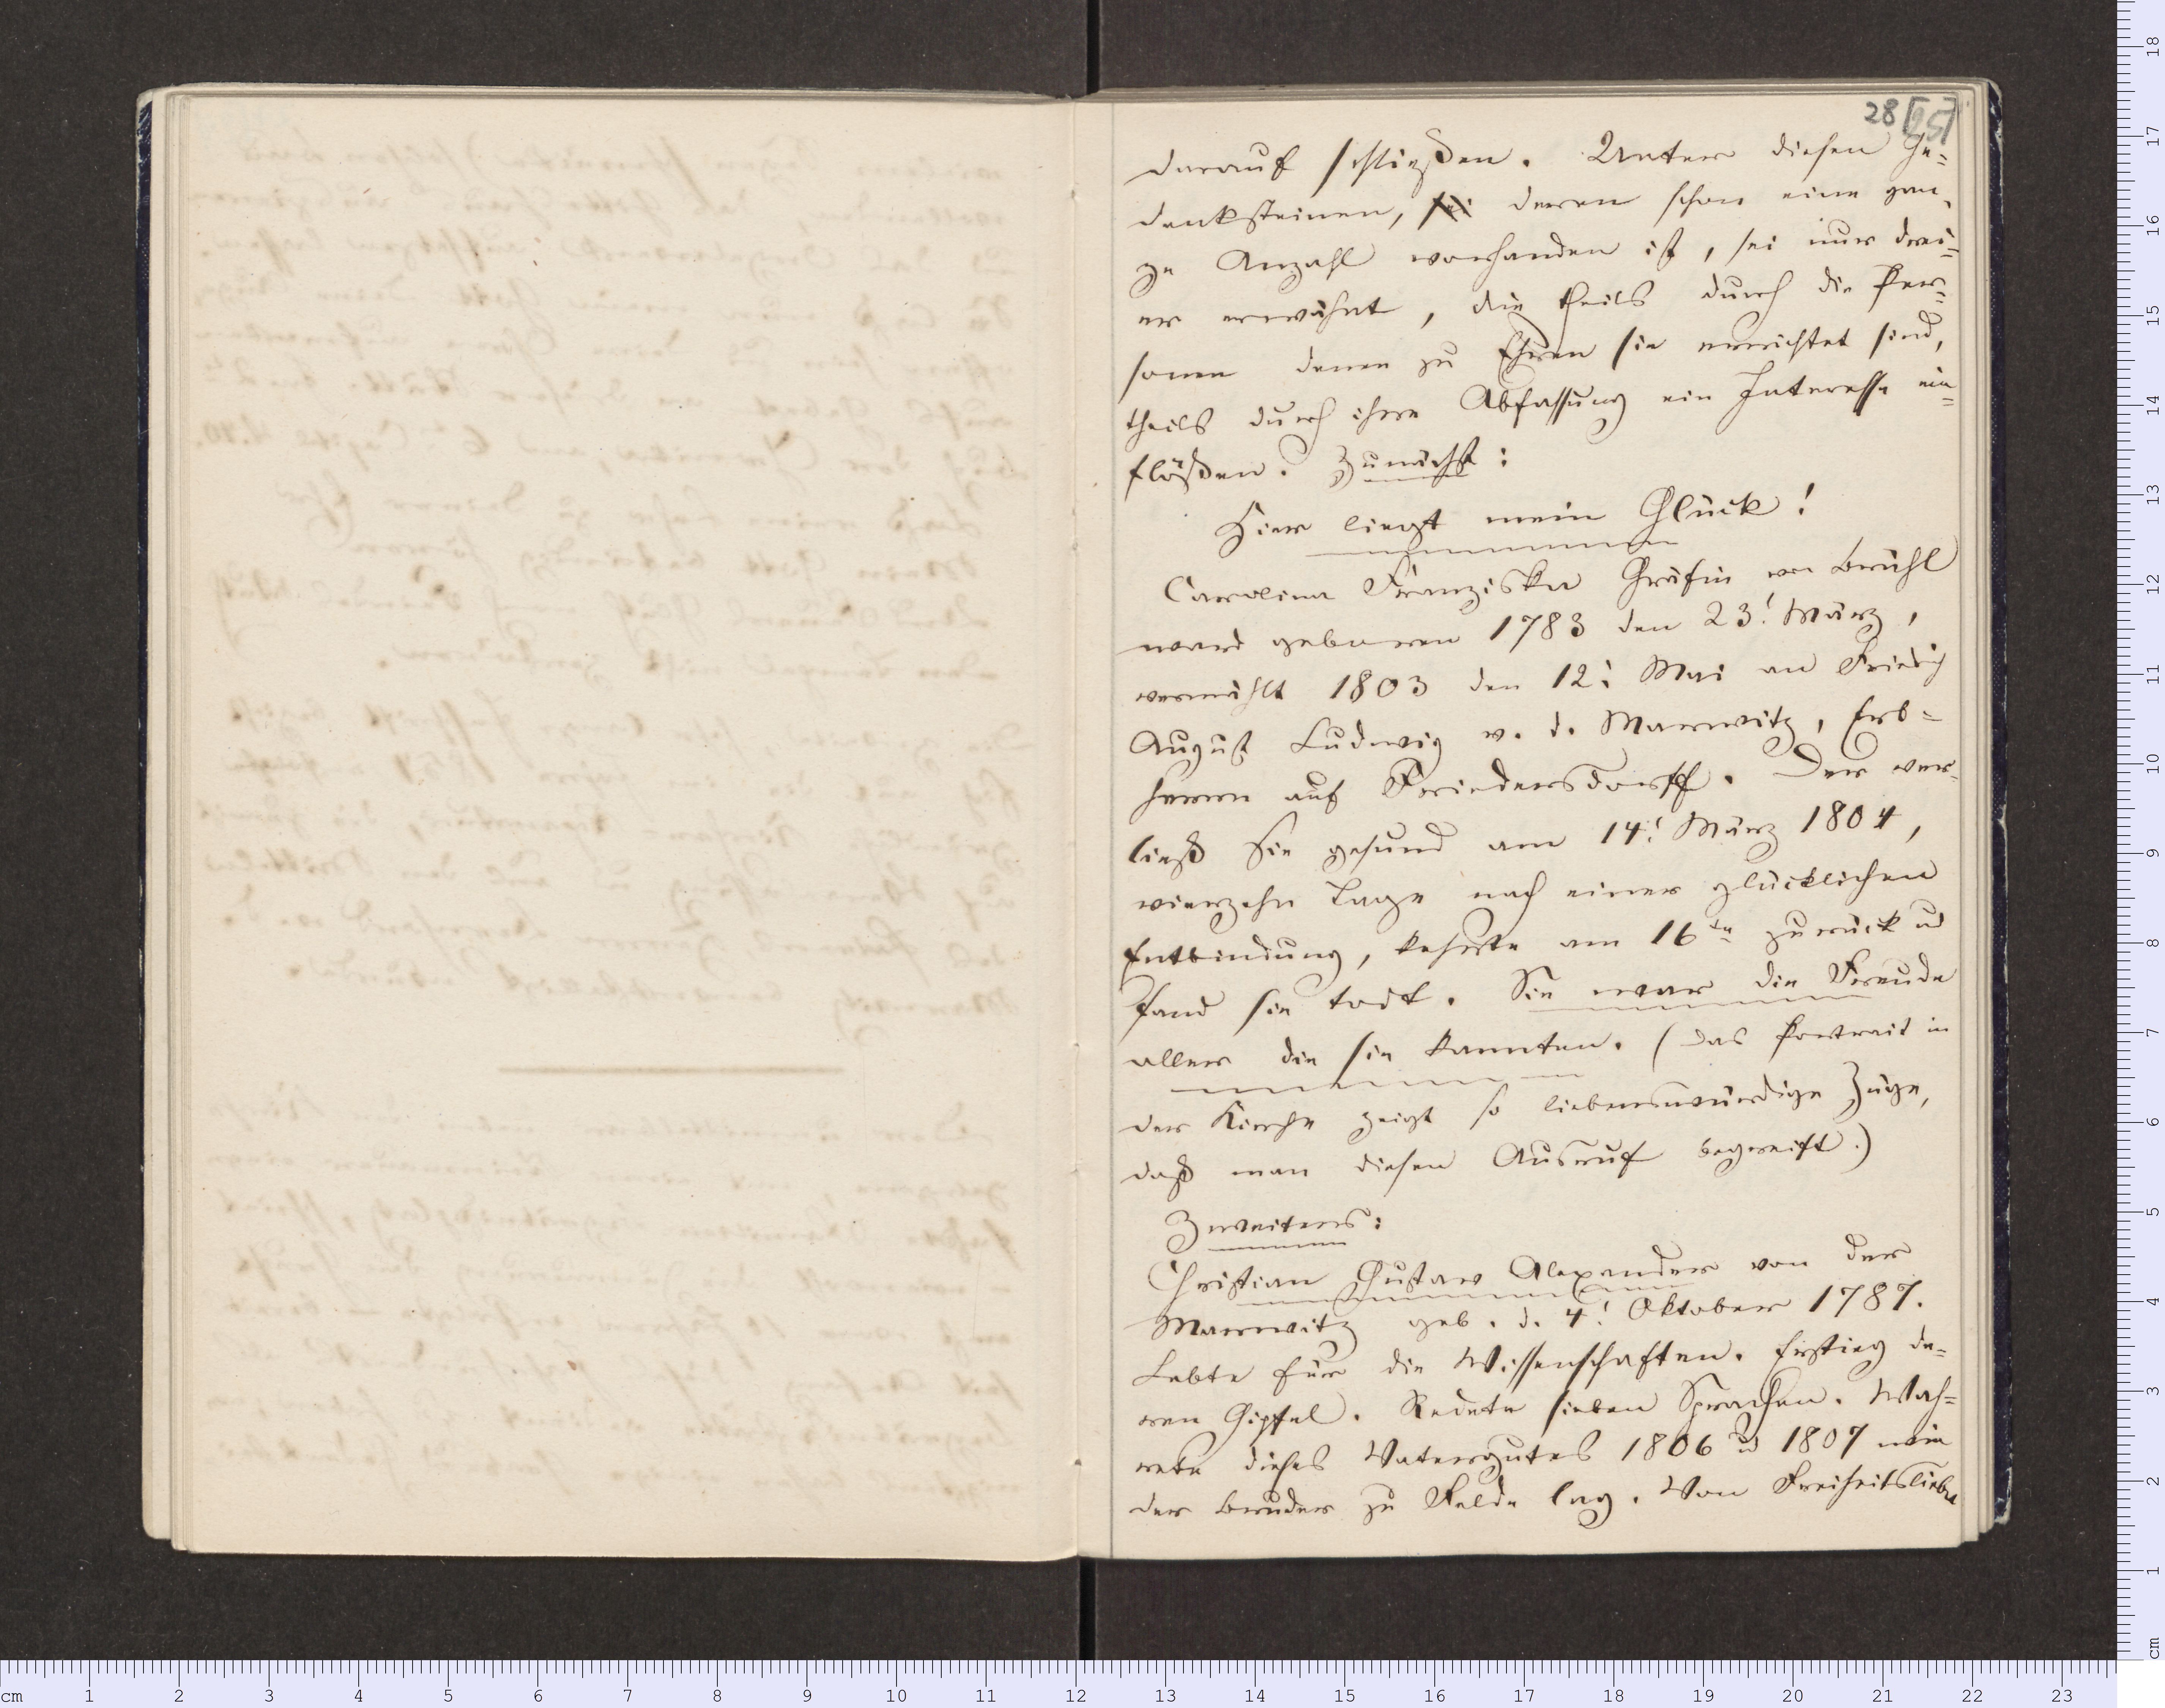 28 [25]
darauf schließen. Unter diesen Ge-
denksteinen, sei deren schon eine gan-
ze Anzahl vorhanden ist, sei nur drei-
er erwähnt, die theils durch die Per-
sonen denen zu Ehren sie errichtet sind,
theils durch ihre Abfassung ein Interesse ein-
flößen. Zunächst:
Hier liegt mein Glück!
Caroline Franziska Gräfin von Brühl
ward geboren 1783 den 23! März,
vermählt 1803 den 12! Mai an Friedrich
August Ludwig v. d. Marwitz, Erb-
herrn auf Friedersdorff. Der ver-
ließ Sie gesund am 14! März 1804,
vierzehn Tage nach einer glücklichen
Entbindung, kehrte am 16ten zurück ud
fand sie todt. Sie war die Freude
aller die sie kannten. (Das Portrait in
der Kirche zeigt so liebenswürdige Züge,
daß man diesen Ausruf begreift.)
Zweitens:
Christian Gustav Alexander von der
Marwitz geb. d. 4! Oktober 1787.
Lebte für die Wissenschaften. Erstieg de-
ren Gipfel. Redete sieben Sprachen. Wah-
rete dieses Vatergutes 1806 ud 1807 wie
der Bruder zu Felde lag. Von Freiheitsliebe